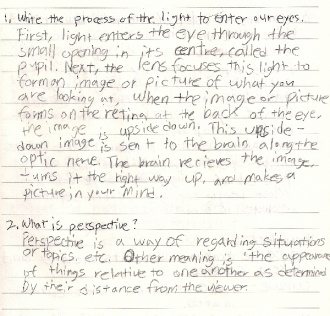 1. Write the process of the light to enter our eyes.
First, light enters the eye through the
small opening in its centre, called the
pupil. Next, the lens focuses this light to
forman image or picture of what you
are looking at, when the image or picture
forms on the retina at the back of the eye.
the image is upside down. This upside-
down image is sent to the brain along the
optic nerve. The brain recieves the image,
turns it the right way up, and makes a
picture in your mind.
2. What is perspective?
Perspective is a way of regarding situations
or topics. etc. Other meaning is "the appearance
of things relative to one another as determined
by their distance from the viewer.